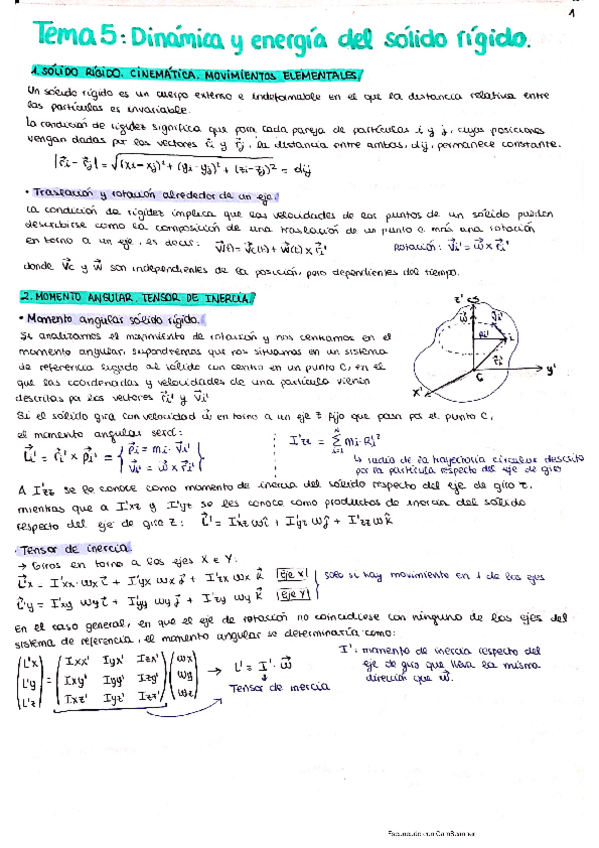 1
Tema 5: Dinámica y energía del sólido rígido.
1. SÓLIDO RÍGIDO. CINEMÁTICA. MOVIMIENTOS ELEMENTALES.
Un sólido rígido es un cuerpo extenso e indeformable en el que la distancia relativa entre
las partículas es invariable.
La condición de rigidez significa que para cada pareja de partículas i y j, cuyas posiciones
vengan dadas por los vectores r⃗i y r⃗j, la distancia entre ambas, dij, permanece constante.
|r⃗i - r⃗j| = √((xi-xj)² + (yi-yj)² + (zi-zj)²) = dij
• Traslación y rotación alrededor de un eje.
La condición de rigidez implica que las velocidades de los puntos de un sólido pueden
describirse como la composición de una traslación de un punto c más una rotación
en torno a un eje, es decir: v⃗i(t) = v⃗c(t) + w⃗(t) x r⃗i' Rotación: v⃗i' = w⃗ x r⃗i'
donde v⃗c y w⃗ son independientes de la posición, pero dependientes del tiempo.
2. MOMENTO ANGULAR. TENSOR DE INERCIA.
• Momento angular sólido rígido.
Si analizamos el movimiento de rotación y nos centramos en el
momento angular, supondremos que nos situamos en un sistema
de referencia ligado al sólido con centro en un punto C, en el
que las coordenadas y velocidades de una partícula vienen
descritas por los vectores r⃗i' y v⃗i'
z'
w⃗
Ri'
v⃗i'
i
r⃗i'
C
y'
x'
Si el sólido gira con velocidad w⃗ en torno a un eje z fijo que pasa por el punto C,
el momento angular será:
L⃗i' = r⃗i' x p⃗i' = { p⃗i = mi · v⃗i'
v⃗i' = w⃗ x r⃗i' }
I'zz = Σ mi · Ri²
↳ radio de la trayectoria circular descrito
por la partícula respecto del eje de giro
A I'zz se le conoce como momento de inercia del sólido respecto del eje de giro z,
mientras que a I'xz y I'yz se les conoce como productos de inercia del sólido
respecto del eje de giro z: L⃗' = I'xz w i⃗ + I'yz w j⃗ + I'zz w k⃗
· Tensor de inercia.
→ Giros en torno a los ejes X e Y:
L⃗'x = I'xx · wx i⃗ + I'yx wx j⃗ + I'zx wx k⃗ Eje X
L⃗'y = I'xy wy i⃗ + I'yy wy j⃗ + I'zy wy k⃗ Eje Y
solo si hay movimiento en 1 de los ejes
En el caso general, en que el eje de rotación no coincidiese con ninguno de los ejes del
sistema de referencia, el momento angular se determinaría como:
(L'x) = (Ixx' Iyx' Izx') (wx)
(L'y) = (Ixy' Iyy' Izy') (wy) → L' = I' · w⃗
(L'z) = (Ixz' Iyz' Izz') (wz)
Tensor de inercia
I': momento de inercia respecto del
eje de giro que lleva la misma
dirección que w⃗.
Escaneado con CamScanner